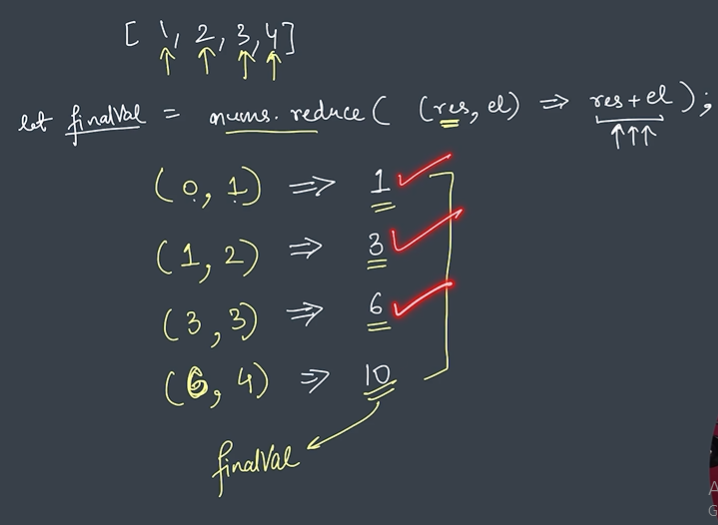 [ 1, 2, 3, 4 ]
let finalVal = nums.reduce( (res, el) => res + el );
(0, 1) => 1
(1, 2) => 3
(3, 3) => 6
(6, 4) => 10
finalVal